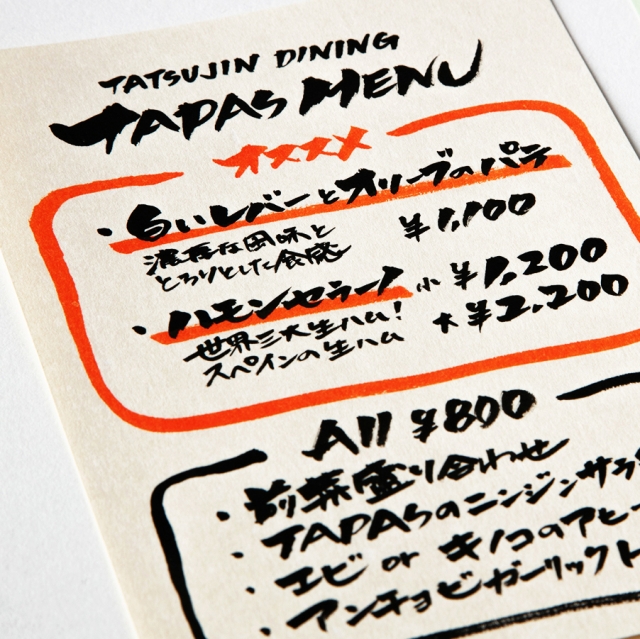 TATSUJIN DINING
TAPAS MENU
オススメ
・白いレバーとオリーブのパテ
濃厚な風味と
とろりとした食感
¥1,100
・ハモンセラーノ 小 ¥1,200
世界三大生ハム!
スペインの生ハム
大 ¥2,200
All ¥800
・前菜盛り合わせ
・TAPASのニンジンサラ
・エビ or キノコのアヒー
・アンチョビガーリックト